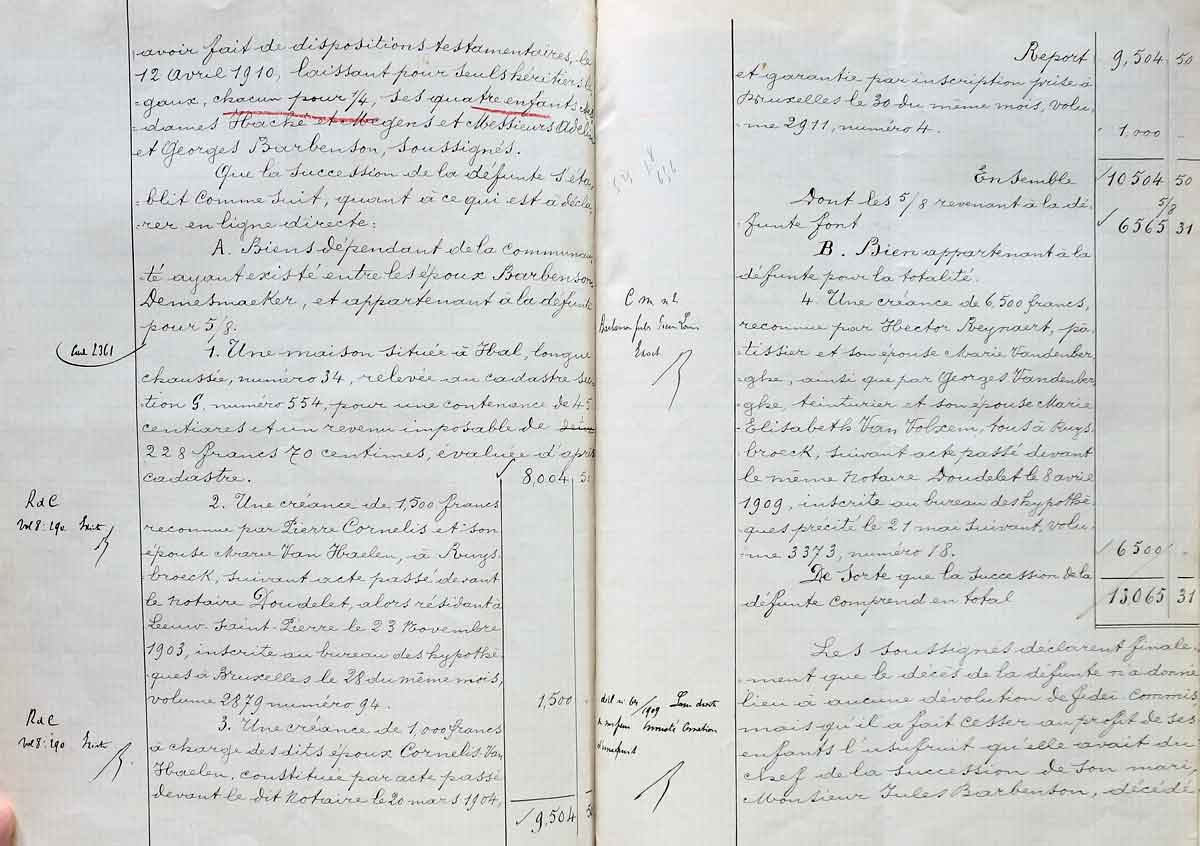 avoir fait de dispositions testamentaires, le
12 Avril 1910, laissant pour seuls héritiers lé
-gaux, chacun pour 1/4, ses quatre enfants
-dames Haché et Megens et Messieurs Adelin
et Georges Barbenson, soussignés.
Que la succession de la défunte s'éta,
blit comme suit, quant à ce qui est à décla,
rer en ligne directe:
A. Biens dépendant de la communau,
té ayant existé entre les époux Barbenson
Demesmaeker, et appartenant à la défunte
pour 5/8.
1. Une maison située à Hal, longue
chaussée, numéro 34, relevée au cadastre sec
-tion G. numéro 554, pour une contenance de 45
centiares et un revenu imposable de
228 francs 70 centimes, évaluée d'après
cadastre. 8,004 50
RdC
Vol 8: 290
2. Une créance de 1,500 francs
reconnue par Pierre Cornelis et son
épouse Marie Van Haelen, à Ruys,
broeck, suivant acte passé devant
le notaire Doudelet, alors résidant à
Leeuw-Saint-Pierre le 23 Novembre
1903, inscrite au bureau des hypothè,
ques à Bruxelles le 28 du même mois,
volume 2879 numéro 94. 1,500
RdC
Vol 8: 290
3. Une créance de 1,000 francs
à charge des dits époux Cornelis-Van
Haelen, constituée par acte passé
devant le dit notaire le 20 mars 1904,
9,504 50
Report 9,504 50
et garantie par inscription prise à
Bruxelles le 30 du même mois, volu,
me 2911, numéro 4. 1.000 -
Ensemble 10504 50
5/8
Dont les 5/8 revenant à la dé,
funte font 6565 31
B. Bien appartenant à la
défunte pour la totalité.
4. Une créance de 6,500 francs,
reconnue par Hector Reynaert, pâ,
tissier et son épouse Marie Vandenber,
ghe, ainsi que par Georges Vandenber,
ghe, teinturier et son épouse Marie
Elisabeth Van Volxem, tous à Ruys,
broeck, suivant acte passé devant
le même notaire Doudelet le 8 avril
1909, inscrite au bureau des hypothè,
ques précité le 21 mai suivant, volu,
me 3373, numéro 18. 6500 -
De sorte que la succession de la
défunte comprend en total 13065 31
Les soussignés déclarent finale-
ment que le décès de la défunte n'a donné
lieu à aucune dévolution de fidei commis
mais qu'il a fait cesser au profit de ses
enfants l'usufruit qu'elle avait du
chef de la succession de son mari,
Monsieur Jules Barbenson, décédé